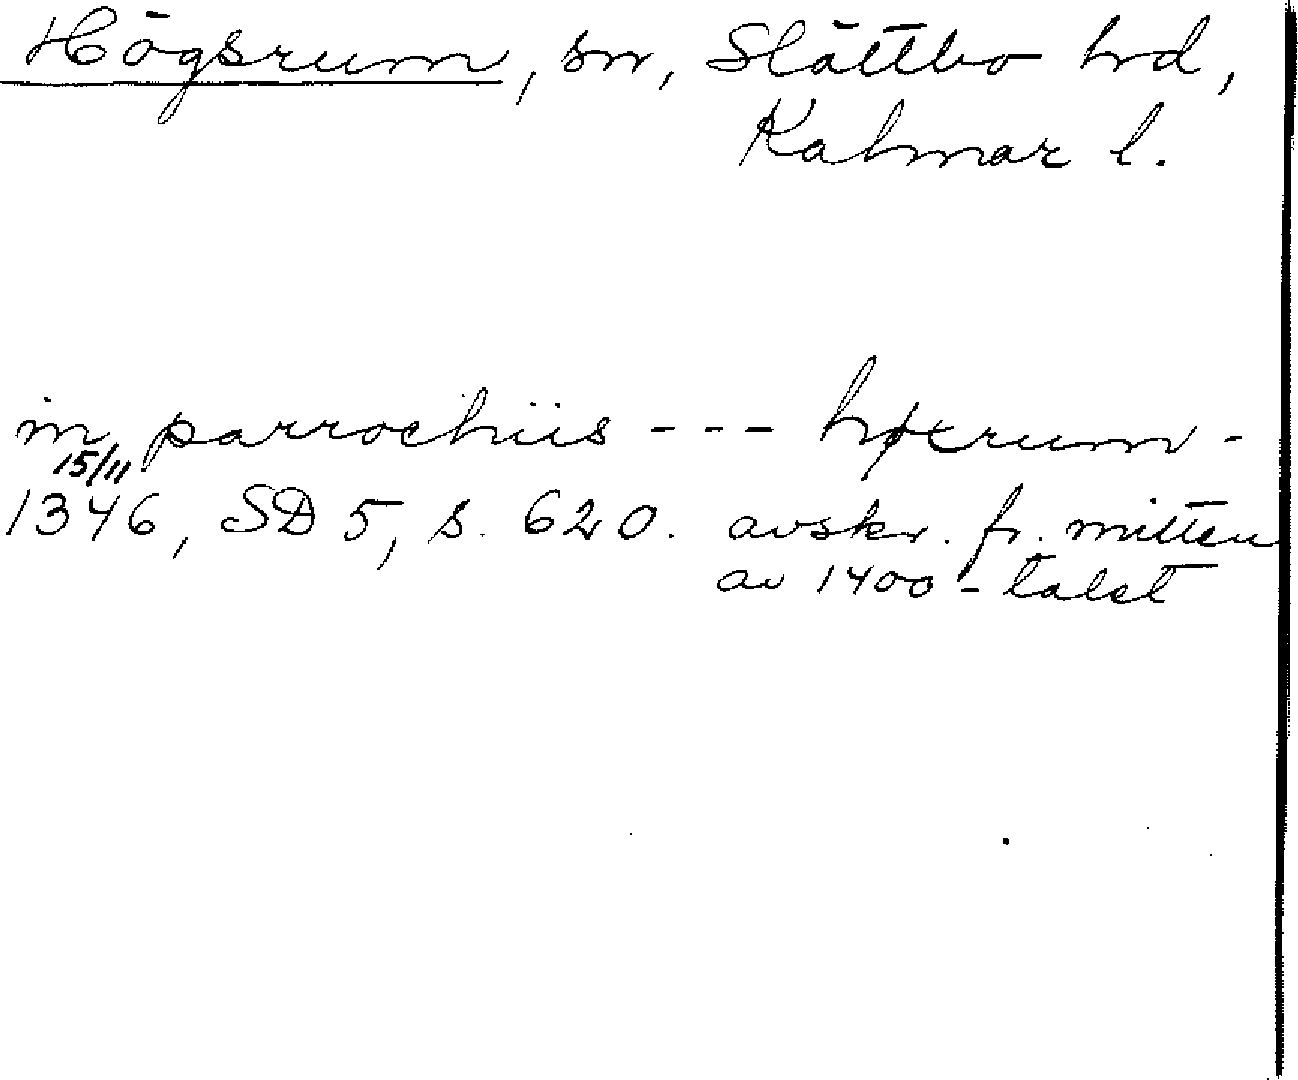 Högsrum, sn, Slättbo hrd,
Kalmar l.
in parrochiis --- høxrum -
15/11
1346, SD 5, s. 620. avskr. fr. mitten
av 1400-talet